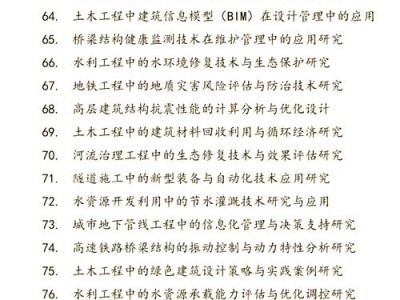 64. 土木工程中建筑信息模型（BIM）在设计管理中的应用
65. 桥梁结构健康监测技术在维护管理中的应用研究
66. 水利工程中的水环境修复技术与生态保护研究
67. 地铁工程中的地质灾害风险评估与防治技术研究
68. 高层建筑结构抗震性能的计算分析与优化设计
69. 土木工程中的建筑材料回收利用与循环经济研究
70. 河流治理工程中的生态修复技术与效果评估研究
71. 隧道施工中的新型装备与自动化技术应用研究
72. 水资源开发利用中的节水灌溉技术研究与应用
73. 城市地下管线工程中的信息化管理与决策支持研究
74. 高速铁路桥梁结构的振动控制与动力特性分析研究
75. 土木工程中的绿色建筑设计策略与实践案例研究
76. 水利工程中的水资源承载能力评估与优化调控研究